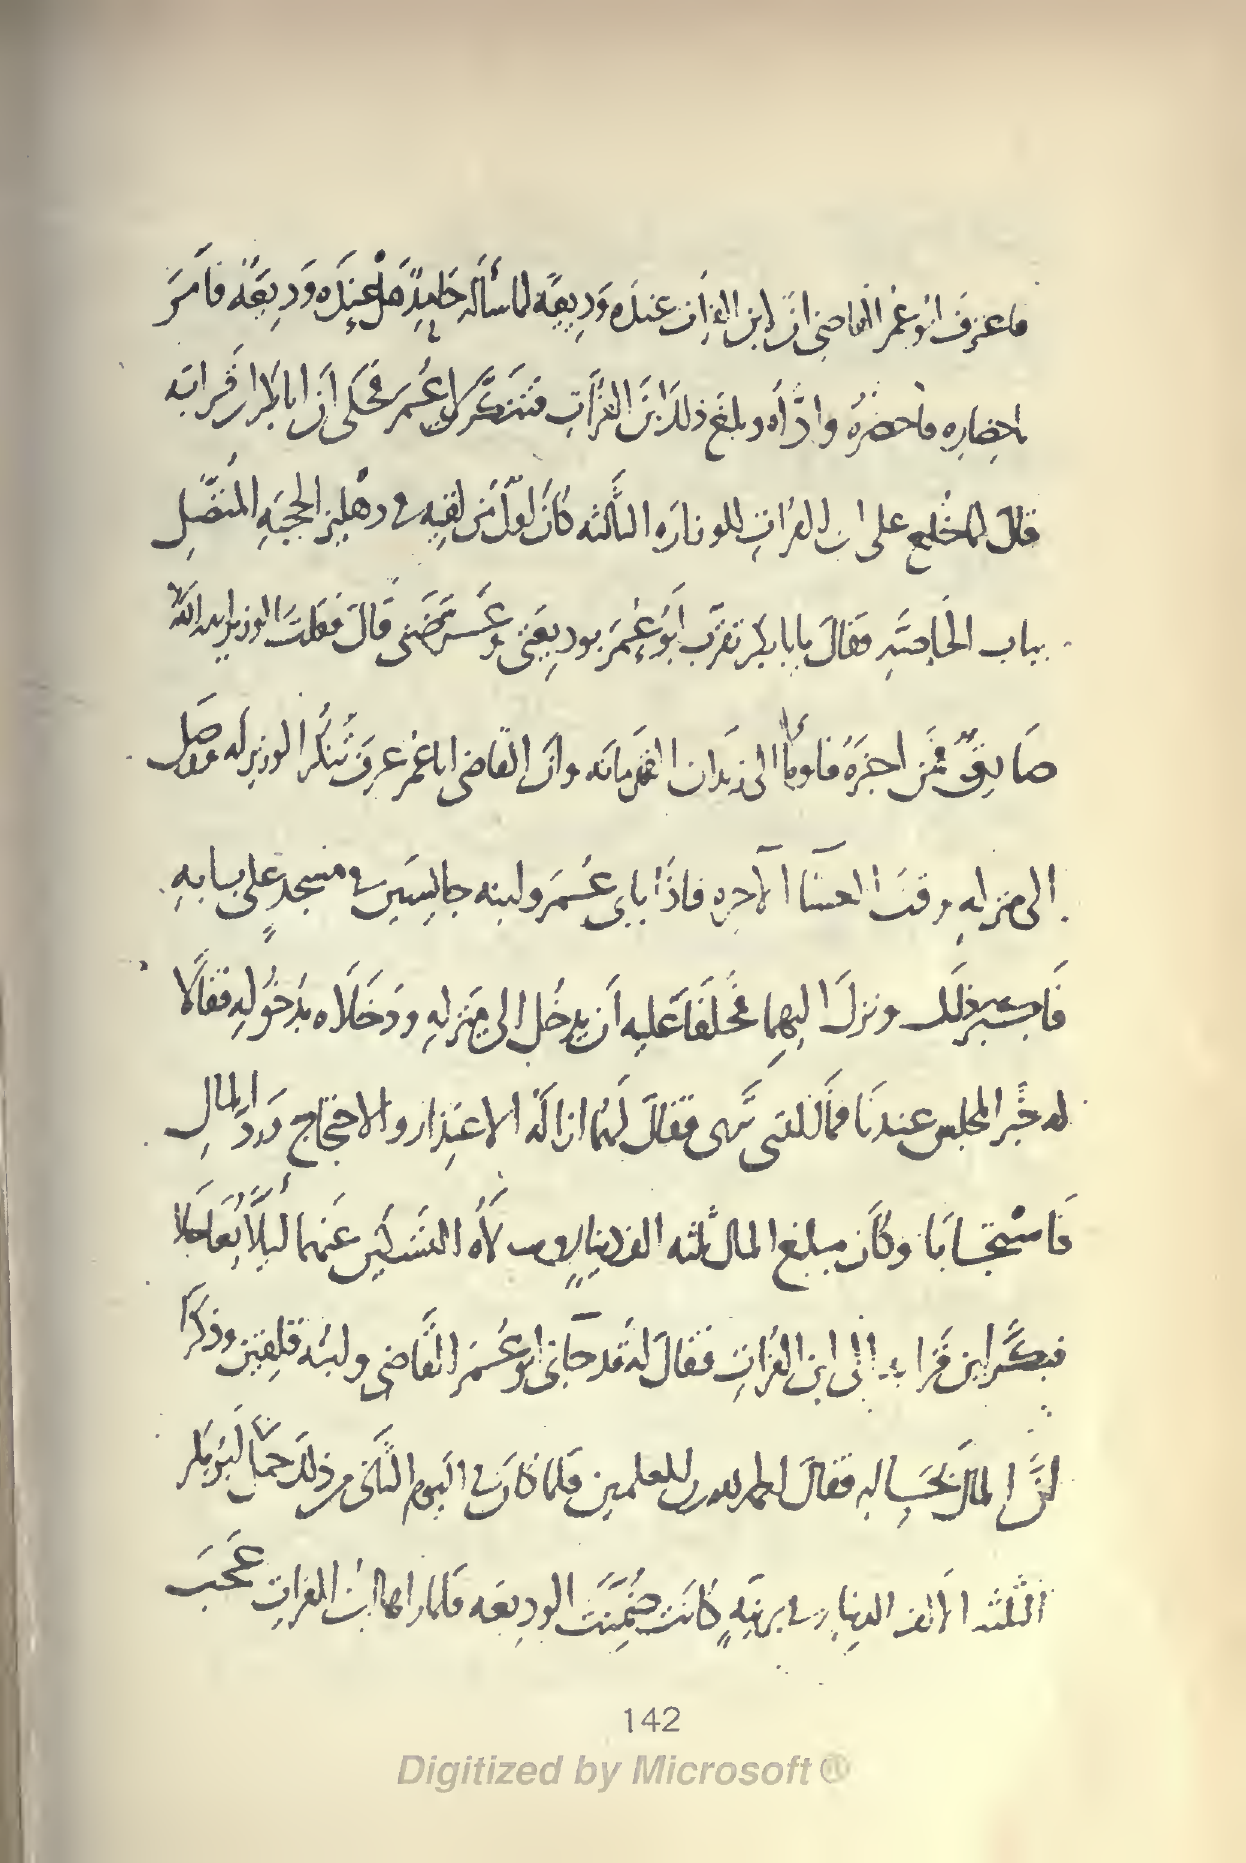 ما عرف ابو عُمر القاضى انَّ لابن الفرات عنده وديعة لما سأله حامدٌ هَلْ عنده وديعَةً فامرَ
باحضاره فاحضرهُ وادَّاه وبلغَ ذلك ابنَ الفُرَات فتنكَّر لابى عُمر فحكى اَن ابا بكر ابن قرابه
قال لما خُلع على ابن الفراتِ للوزاره الثالثه كانَ اوَّل مَن لقيه فى دهْليز الحجبَة المتّصِل
بباب الخاصَّه فقالَ يابا بكر تقرَّب اَبُو عُمَر بوديعَتى وعَرّضنى قالَ فقلتُ الوزير ايده الله
صادقٌ فمَن اخبرَهُ فاومأ الى زيدَان القهرمانه واَن القاضى ابا عُمر عرفَ تنكُّر الوزير له ووصَل
الى منزله وقتَ العشآا الآخره فاذَا بابى عُمَر وابنه جالسَين فى مسجدٍ على بابه
فَاكبر ذلك ونزلَ اليهما فحلفَا عَليه اَن يدخُل الى منزله ودَخَلاه بدخُوله فقالا
له خبَر المجلس عندنَا فما الذى ترى فقالَ لهُما ازالة الاعتذار والاحتجاج ردَّ المالِ
فَاستجابا وكانَ مبلغ المال ثلثه الف دينارٍ عنهما ليلًا
فبكَّر ابن قرابه الى ابن الفُراتِ فقالَ لهُ قد جآنى ابو عُمَر القَاضى وابنُه قلقين وذكرَا
انَّ المالَ بحَاله فقالَ فلما كان فى اليوم الثَانى من ذلك حمل ابو بكر
الثلثه الالف الدينار فى برنيةٍ كانَت ضُمِّنَت الوديعه فلما راها ابن الفراتِ عَجبَ
142
Digitized by Microsoft ®